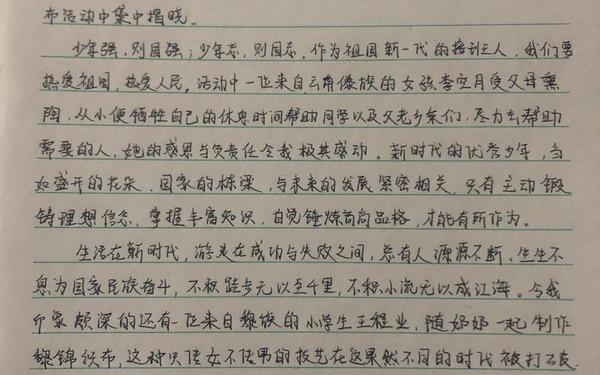 布活动中集中揭晓。
少年强，则国强；少年志，则国志。作为祖国新一代的接班主人，我们要
热爱祖国，热爱人民。活动中一位来自云南傣族的女孩李空月受父母熏
陶，从小便牺牲自己的休息时间帮助同学以及父老乡亲们，尽力去帮助
需要的人，她的感恩与负责任令我极其感动。新时代的优秀少年，当
如盛开的花朵、国家的栋梁，与未来的发展紧密相关，只有主动锻
铸理想信念、掌握丰富知识、自觉锤炼高尚品格，才能有所作为。
生活在新时代，游走在成功与失败之间，总有人源源不断、生生不
息为国家民族奋斗，不积跬步无以至千里，不积小流无以成江海。令我
印象颇深的还有一位来自黎族的小学生王程业，随奶奶一起制作
黎锦织布，这种只传女不传男的技艺在这果然不同的时代被打破。